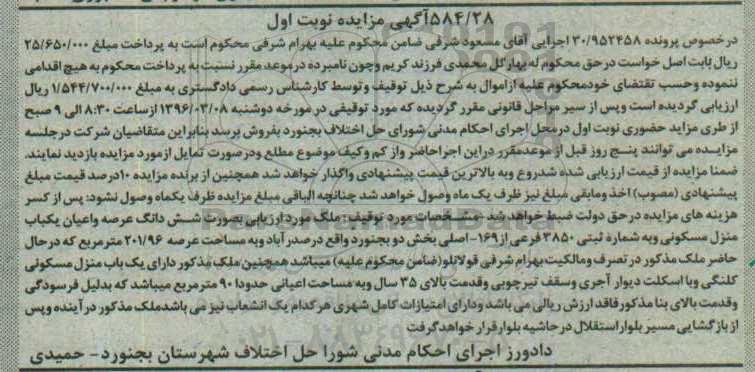 ۵۸۴/۲۸آگهی مزایده نوبت اول
درخصوص پرونده ۳۰/۹۵۲۴۵۸ اجرایی آقای مسعود شرفی ضامن محکوم علیه بهرام شرفی محکوم است به پرداخت مبلغ ۲۵/۶۵۰/۰۰۰
ریال بابت اصل خواست درحق محکوم له بهارگل محمدی فرزند کریم وچون نامبرده درموعد مقرر نسبت به پرداخت محکوم به هیچ اقدامی
ننموده وحسب تقتضای خودمحکوم علیه ازاموال به شرح ذیل توقیف وتوسط کارشناس رسمی دادگستری به مبلغ ۱/۵۴۴/۷۰۰/۰۰۰ ریال
ارزیابی گردیده است وپس از سیر مراحل قانونی مقرر گردیده که مورد توقیفی در مورخه دوشنبه ۱۳۹۶/۰۳/۰۸ ازساعت ۸:۳۰ الی ۹ صبح
از طری مزاید حضوری نوبت اول درمحل اجرای احکام مدنی شورای حل اختلاف بجنورد بفروش برسد بنابراین متقاضیان شرکت درجلسه
مزایــده می توانند پنــج روز قبل از موعدمقرر دراین اجراحاضر واز کم وکیف موضوع مطلع ودرصورت تمایل ازمورد مزایده بازدید نمایند.
ضمنا مزایده از قیمت ارزیابی شده شدروع وبه بالاترین قیمت پیشنهادی واگذار خواهد شد همچنین از برنده مزایده ۱۰درصد قیمت مبلغ
پیشنهادی (مصوب) اخذ ومابقی مبلغ نیز ظرف یک ماه وصول خواهد شد چنانچه الباقی مبلغ مزایده ظرف یکماه وصول نشود: پس از کسر
هزینه های مزایده درحق دولت ضبط خواهد شد - مشــخصات مورد توقیف : ملک مورد ارزیابی بصورت شــش دانگ عرصه واعیان یکباب
منزل مسکونی وبه شماره ثبتی ۳۸۵۰ فرعی از ۱۶۹- اصلی بخش دو بجنورد واقع درصدرآباد وبه مساحت عرصه ۲۰۱/۹۶ مترمربع که درحال
حاضر ملک مذکور در تصرف ومالکیت بهرام شرفی قولانلو (ضامن محکوم علیه) میباشد همچنین ملک مذکور دارای یک باب منزل مسکونی
کلنگی وبا اسکلت دیوار آجری وسقف تیرچوبی وقدمت بالای ۳۵ سال وبه مساحت اعیانی حدودا ۹۰ مترمربع میباشد که بدلیل فرسودگی
وقدمت بالای بنا مذکور فاقد ارزش ریالی می باشد ودارای امتیازات کامل شهری هرکدام یک انشعاب نیز می باشدملک مذکور در آینده وپس
از بازگشایی مسیر بلوار استقلال درحاشیه بلوارقرار خواهدگرفت
دادورز اجرای احکام مدنی شورا حل اختلاف شهرستان بجنورد- حمیدی